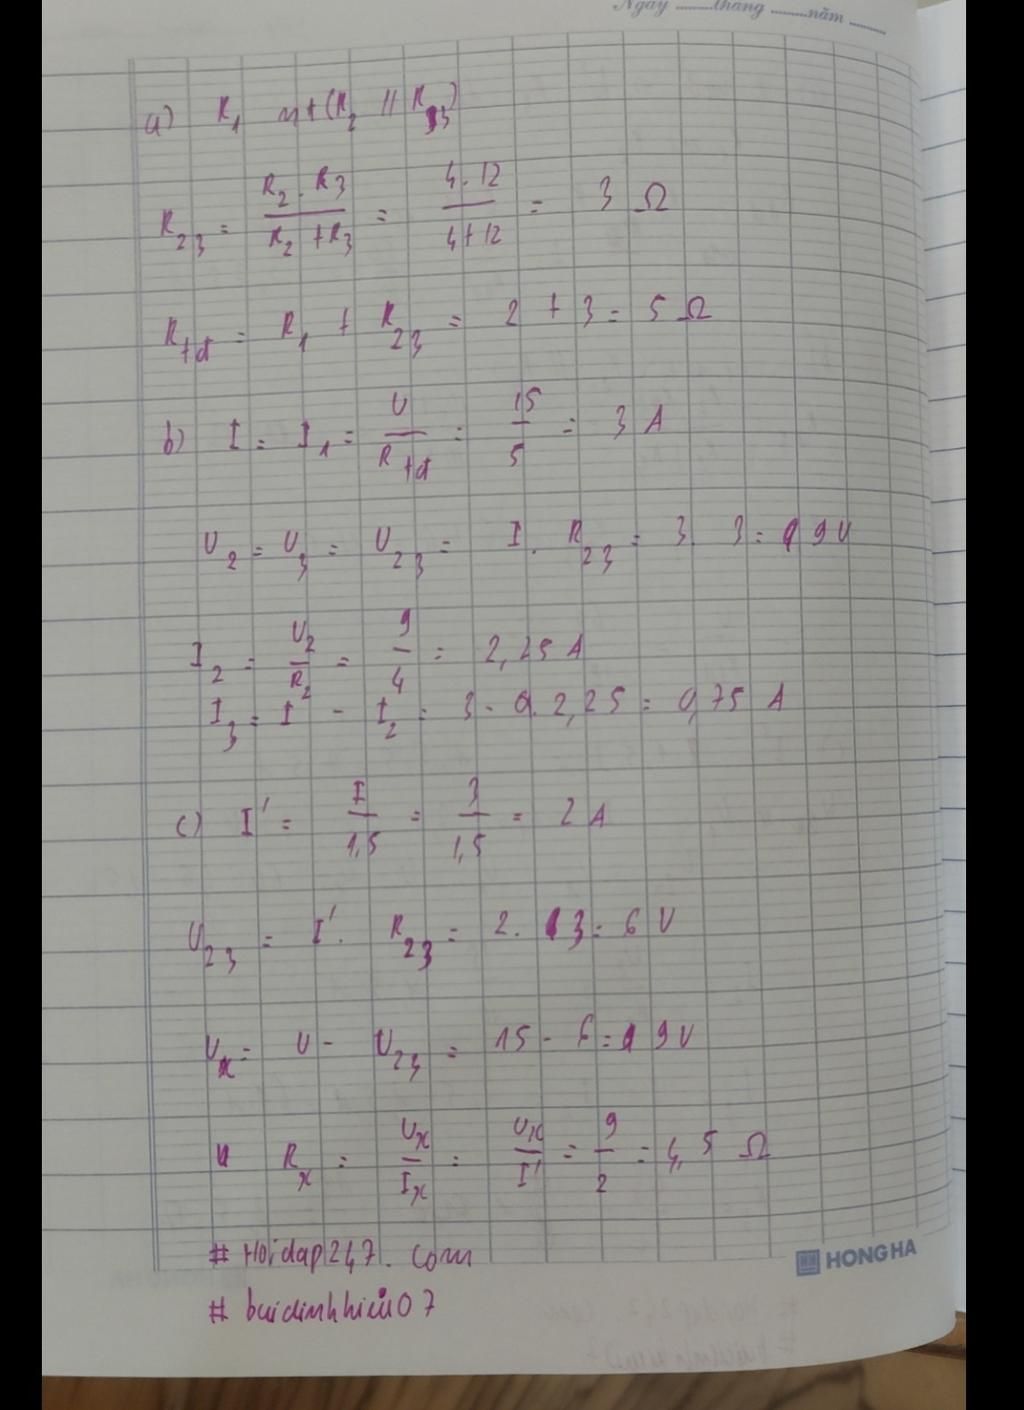 Ngày ........tháng ........năm ........
a) R₁ nt (R₂ // R₃)
R₂₃ = R₂ . R₃ / R₂ + R₃ = 4 . 12 / 4 + 12 = 3 Ω
Rtđ = R₁ + R₂₃ = 2 + 3 = 5 Ω
b) I = I₁ = U / Rtđ = 15 / 5 = 3 A
U₂ = U₃ = U₂₃ = I . R₂₃ = 3 . 3 = 9 V
I₂ = U₂ / R₂ = 9 / 4 = 2,25 A
I₃ = I - I₂ = 3 - 2,25 = 0,75 A
c) I' = I / 1,5 = 3 / 1,5 = 2 A
U₂₃ = I' . R₂₃ = 2 . 3 = 6 V
Uₓ = U - U₂₃ = 15 - 6 = 9 V
Rₓ = Uₓ / Iₓ = Uₓ / I' = 9 / 2 = 4,5 Ω
# Hoidap247.com
HONG HA
# buidinhhieu07